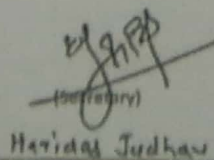 (Secretary)
Haridas Jadhav